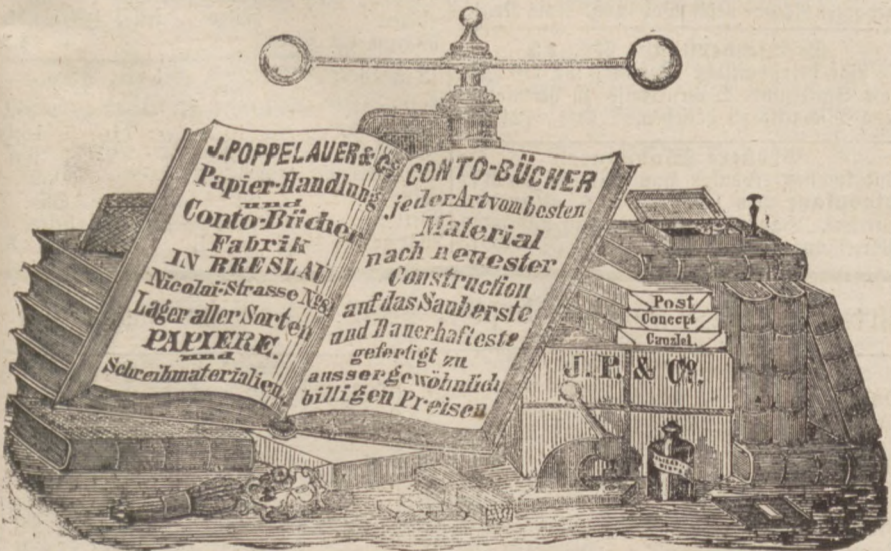 J. POPPELAUER & Co.
Papier-Handlung
und
Conto-Bücher
Fabrik
IN BRESLAU
Nicolai-Strasse No. 8
Lager aller Sorten
PAPIERE.
und
Schreibmaterialien
CONTO-BÜCHER
jeder Art vom besten
Material
nach neuester
Construction
auf das Sauberste
und Dauerhafteste
gefertigt zu
aussergewöhnlich
billigen Preisen
Post
Concept
Canzlei
J. P. & Co.